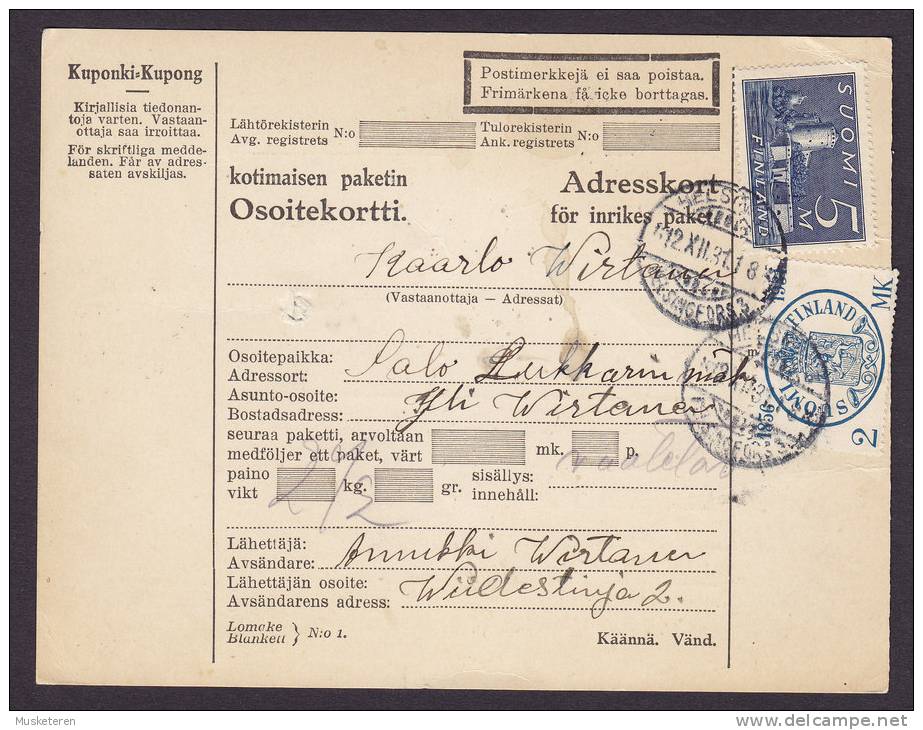 Kuponki-Kupong
Kirjallisia tiedonan-
toja varten. Vastaan-
ottaja saa irroittaa.
För skriftliga medde-
landen. Får av adres-
saten avskiljas.
Postimerkkejä ei saa poistaa.
Frimärkena få icke borttagas.
Lähtörekisterin
Avg. registrets N:o
Tulorekisterin
Ank. registrets N:o
kotimaisen paketin
Osoitekortti.
Adresskort
för inrikes paket
SUOMI
5 M
FINLAND
12.XII.31.
HELSINGFORS
Kaarlo Wirtanen
(Vastaanottaja — Adressat)
1931
FINLAND
SUOMI
1856
2 MK
Osoitepaikka:
Adressort: Salo
Asunto-osoite:
Bostadsadress: Yli Wirtanen
seuraa paketti, arvoltaan
medföljer ett paket, värt mk. p.
paino
vikt kg. gr.
sisällys:
innehåll:
Lähettäjä:
Avsändare: Annikki Wirtanen
Lähettäjän osoite:
Avsändarens adress: Wiideslinja 2.
Lomake
Blankett } N:o 1.
Käännä. Vänd.
Musketeren
delcampe.net